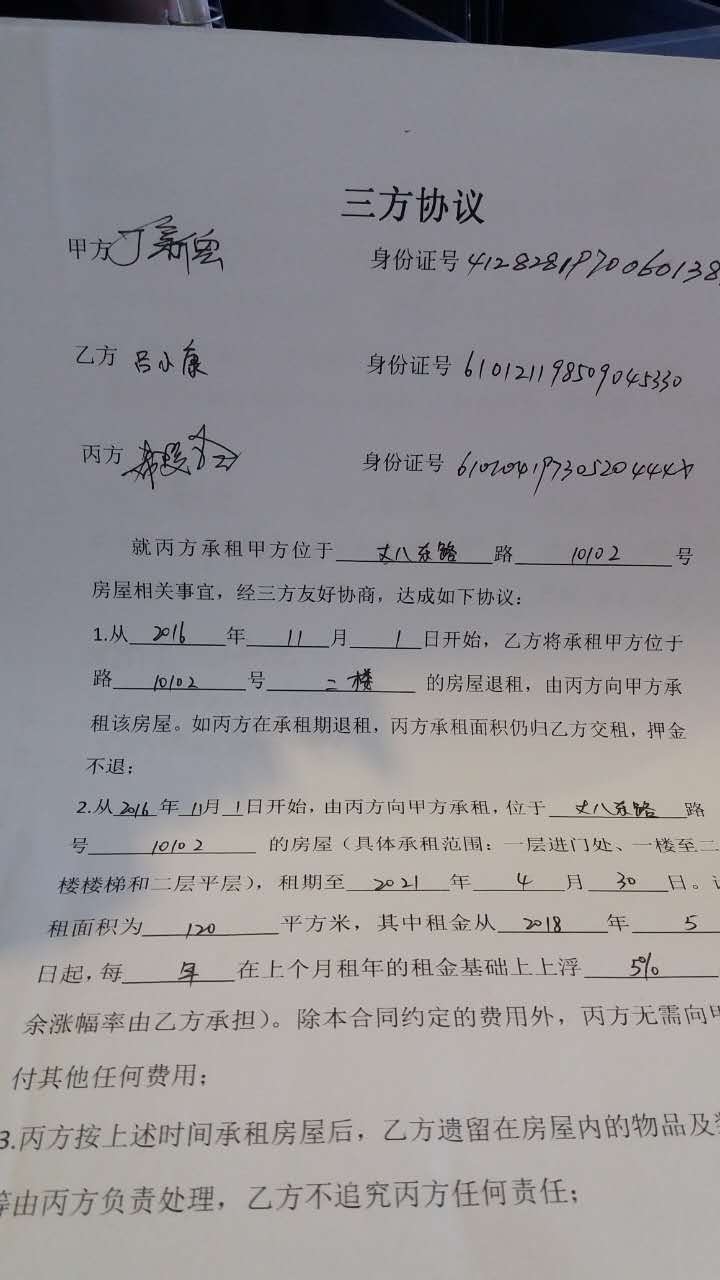 三方协议
甲方 丁新 身份证号 4128281970060138
乙方 吕小康 身份证号 610121198509045330
丙方 身份证号 61010419730520444X
就丙方承租甲方位于 丈八东路 路 10102 号
房屋相关事宜，经三方友好协商，达成如下协议：
1.从 2016 年 11 月 1 日开始，乙方将承租甲方位于
路 10102 号 二楼 的房屋退租，由丙方向甲方承
租该房屋。如丙方在承租期退租，丙方承租面积仍归乙方交租，押金
不退；
2.从 2016 年 11 月 1 日开始，由丙方向甲方承租，位于 丈八东路 路
号 10102 的房屋（具体承租范围：一层进门处、一楼至二
楼楼梯和二层平层），租期至 2021 年 4 月 30 日。
租面积为 120 平方米，其中租金从 2018 年 5
日起，每 年 在上个月租年的租金基础上上浮 5%
余涨幅率由乙方承担）。除本合同约定的费用外，丙方无需向甲
付其他任何费用；
3.丙方按上述时间承租房屋后，乙方遗留在房屋内的物品及
等由丙方负责处理，乙方不追究丙方任何责任；